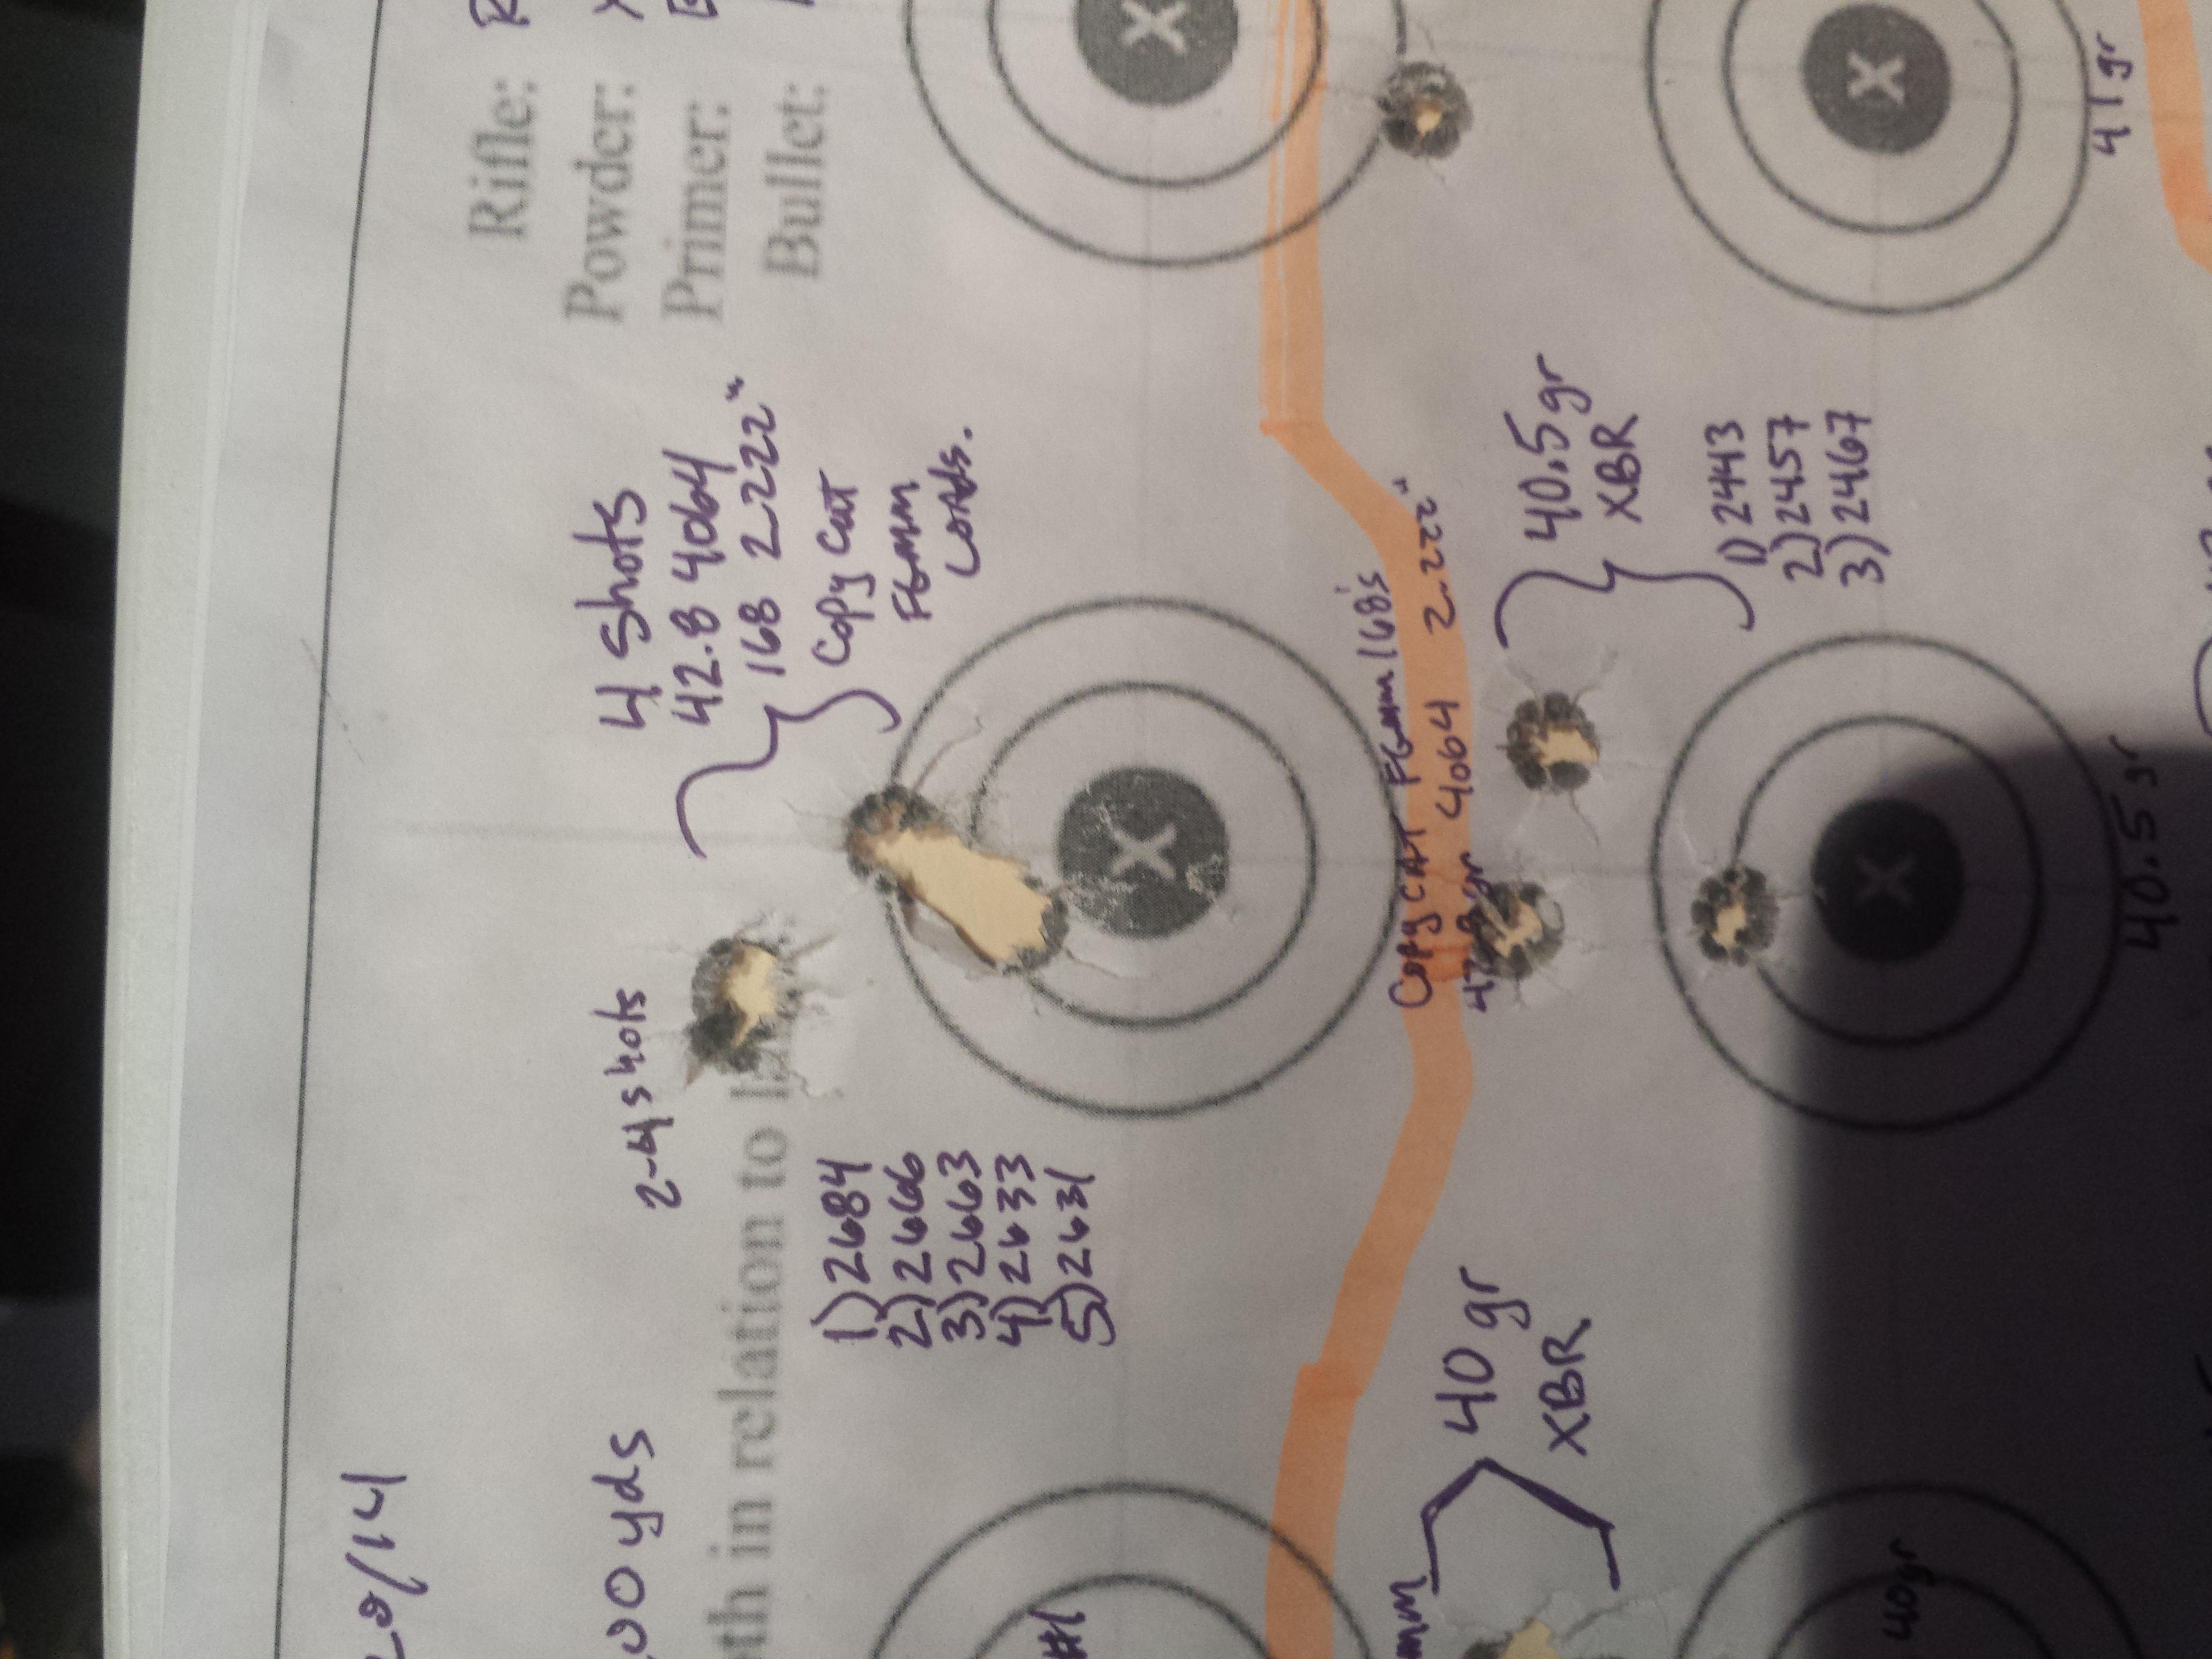 Rifle:
Powder:
Primer:
Bullet:
4 shots
42.8 4064
168 2.222"
Copy Cat
FGMM
Loads.
2-4 shots
in relation to
1) 2684
2) 2666
3) 2663
4) 2633
5) 2631
00 yds
/14
#1
X
X
X
X
Copy CAT FGMM 168's
gr 4064 2.222"
40.5 gr
XBR
1) 2443
2) 2457
3) 2467
40 gr
XBR
40 gr
40.5 gr
41 gr